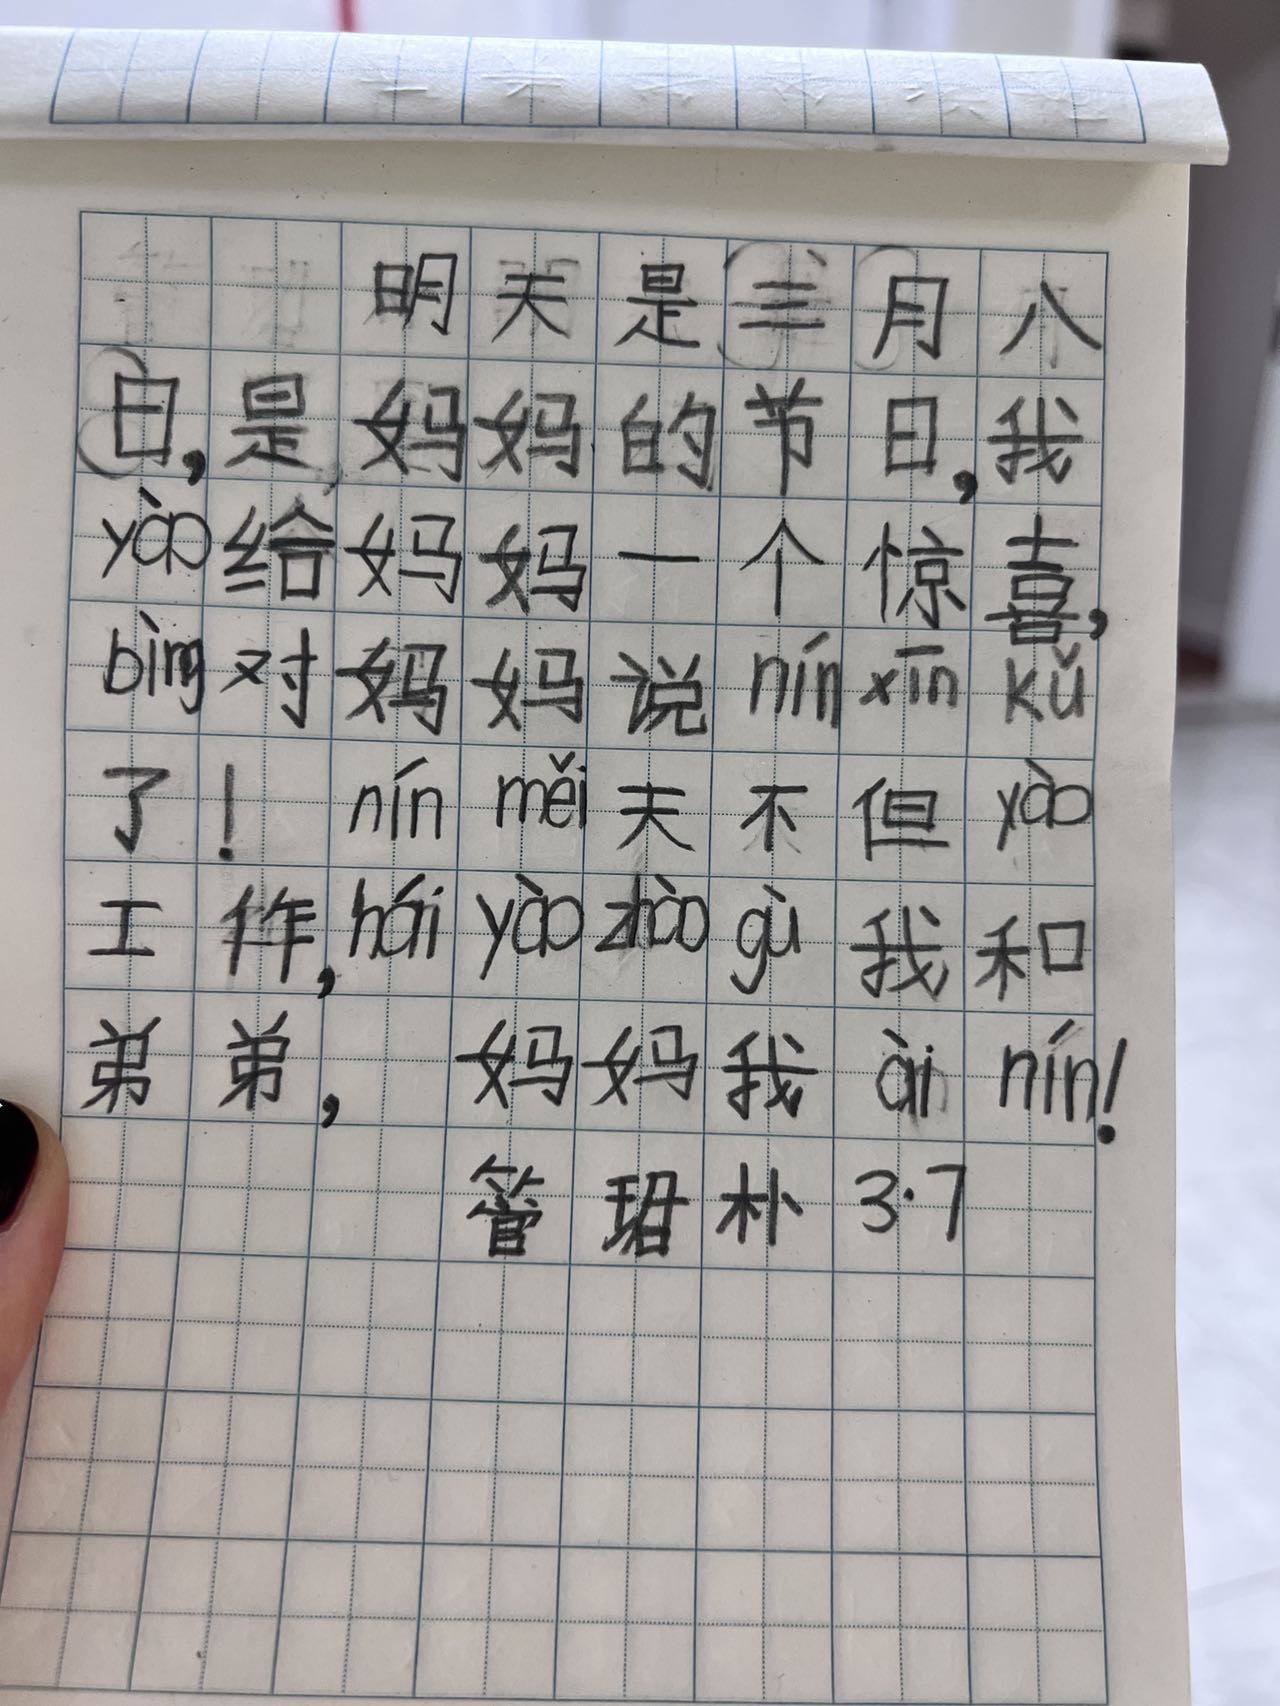 明天是三月八
日,是妈妈的节日,我
yào给妈妈一个惊喜,
bìng对妈妈说nín xīn kǔ
了! nín měi天不但yào
工作,hái yào zhào gù我和
弟弟, 妈妈我ài nín!
管珺朴 3.7